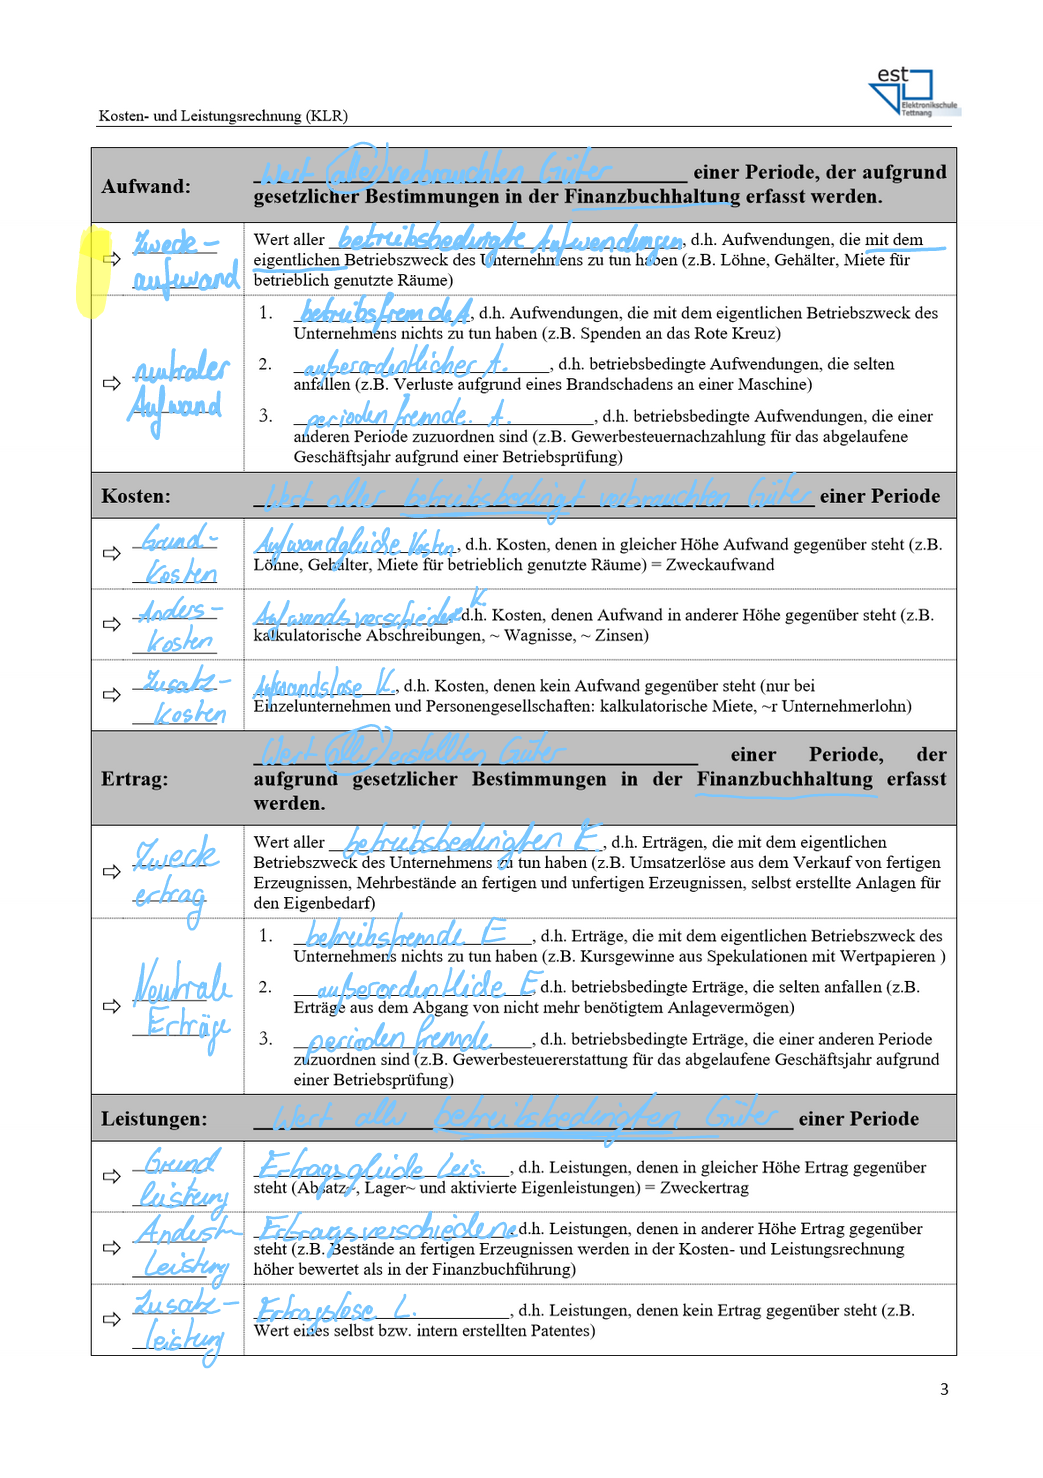 est
Elektronikschule
Tettnang
Kosten- und Leistungsrechnung (KLR)
Aufwand:
Wert aller verbrauchten Güter einer Periode, der aufgrund
gesetzlicher Bestimmungen in der Finanzbuchhaltung erfasst werden.
⇨ Zweck-
aufwand
Wert aller betriebsbedingte Aufwendungen, d.h. Aufwendungen, die mit dem
eigentlichen Betriebszweck des Unternehmens zu tun haben (z.B. Löhne, Gehälter, Miete für
betrieblich genutzte Räume)
⇨ neutraler
Aufwand
1. betriebsfremd A, d.h. Aufwendungen, die mit dem eigentlichen Betriebszweck des
Unternehmens nichts zu tun haben (z.B. Spenden an das Rote Kreuz)
2. außerordentlicher A., d.h. betriebsbedingte Aufwendungen, die selten
anfallen (z.B. Verluste aufgrund eines Brandschadens an einer Maschine)
3. perioden fremde. A., d.h. betriebsbedingte Aufwendungen, die einer
anderen Periode zuzuordnen sind (z.B. Gewerbesteuernachzahlung für das abgelaufene
Geschäftsjahr aufgrund einer Betriebsprüfung)
Kosten:
Wert aller betriebsbedingt verbrauchten Güter einer Periode
⇨ Grund-
kosten
Aufwandgleiche Kosten, d.h. Kosten, denen in gleicher Höhe Aufwand gegenüber steht (z.B.
Löhne, Gehälter, Miete für betrieblich genutzte Räume) = Zweckaufwand
⇨ Anders-
kosten
Aufwandsverschiedene K. d.h. Kosten, denen Aufwand in anderer Höhe gegenüber steht (z.B.
kalkulatorische Abschreibungen, ~ Wagnisse, ~ Zinsen)
⇨ Zusatz-
kosten
Aufwandslose K., d.h. Kosten, denen kein Aufwand gegenüber steht (nur bei
Einzelunternehmen und Personengesellschaften: kalkulatorische Miete, ~r Unternehmerlohn)
Ertrag:
Wert aller erstellten Güter einer Periode, der
aufgrund gesetzlicher Bestimmungen in der Finanzbuchhaltung erfasst
werden.
⇨ Zweck
ertrag
Wert aller betriebsbedingten E, d.h. Erträgen, die mit dem eigentlichen
Betriebszweck des Unternehmens zu tun haben (z.B. Umsatzerlöse aus dem Verkauf von fertigen
Erzeugnissen, Mehrbestände an fertigen und unfertigen Erzeugnissen, selbst erstellte Anlagen für
den Eigenbedarf)
⇨ Neutrale
Erträge
1. betriebsfremde E, d.h. Erträge, die mit dem eigentlichen Betriebszweck des
Unternehmens nichts zu tun haben (z.B. Kursgewinne aus Spekulationen mit Wertpapieren )
2. außerordentliche E, d.h. betriebsbedingte Erträge, die selten anfallen (z.B.
Erträge aus dem Abgang von nicht mehr benötigtem Anlagevermögen)
3. perioden fremde, d.h. betriebsbedingte Erträge, die einer anderen Periode
zuzuordnen sind (z.B. Gewerbesteuererstattung für das abgelaufene Geschäftsjahr aufgrund
einer Betriebsprüfung)
Leistungen:
Wert aller betriebsbedingten Güter einer Periode
⇨ Grund
leistung
Ertragsgleiche Leis., d.h. Leistungen, denen in gleicher Höhe Ertrag gegenüber
steht (Absatz~, Lager~ und aktivierte Eigenleistungen) = Zweckertrag
⇨ Leistung
Ertragsverschiedene d.h. Leistungen, denen in anderer Höhe Ertrag gegenüber
steht (z.B. Bestände an fertigen Erzeugnissen werden in der Kosten- und Leistungsrechnung
höher bewertet als in der Finanzbuchführung)
⇨ Zusatz-
leistung
Ertragslose L., d.h. Leistungen, denen kein Ertrag gegenüber steht (z.B.
Wert eines selbst bzw. intern erstellten Patentes)
3